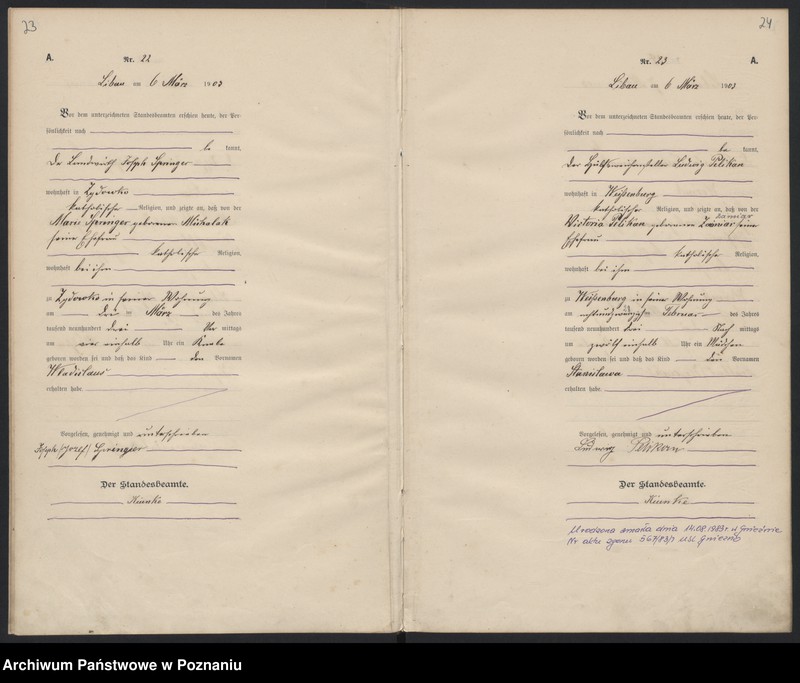 23
A.
Nr. 22
Libau am 6 März 1903
Vor dem unterzeichneten Standesbeamten erschien heute, der Per-
sönlichkeit nach
be kannt,
Der Landwirth Joseph Springer
wohnhaft in Zydowko
katholische Religion, und zeigte an, daß von der
Marie Springer geborenen Michalak
seine Ehefrau
katholische Religion,
wohnhaft bei ihm
zu Zydowko in seiner Wohnung
am drei ten März des Jahres
tausend neunhundert drei Vor mittags
um vier einhalb Uhr ein Knabe
geboren worden sei und daß das Kind den Vornamen
Wladislaus
erhalten habe
Vorgelesen, genehmigt und unterschrieben
Joseph /Jozef/ Springer
Der Standesbeamte.
24
Nr. 23
A.
Libau am 6 März 1903
Vor dem unterzeichneten Standesbeamten erschien heute, der Per-
sönlichkeit nach
be kannt,
Der Hülfsweichensteller Ludwig Pelikan
wohnhaft in Weißenburg
katholischer Religion, und zeigte an, daß von der
Victoria Pelikan geborenen seine
Ehefrau
katholische Religion,
wohnhaft bei ihm
zu Weißenburg in seine Wohnung
am achtundzwanzigsten Februar des Jahres
tausend neunhundert drei Nach mittags
um zwölf einhalb Uhr ein Mädchen
geboren worden sei und daß das Kind den Vornamen
Stanislawa
erhalten habe
Vorgelesen, genehmigt und unterschrieben
Ludwig Pelikan
Der Standesbeamte.
Urodzona zmarła dnia 14.08.1983 r. w Gnieźnie
Nr aktu zgonu 567/83/I USC Gniezno
Archiwum Państwowe w Poznaniu